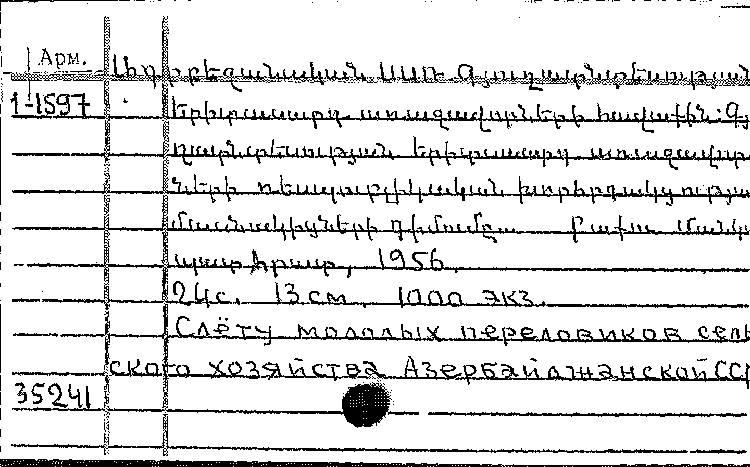 Арм.
Ադրբեջանական ՍՍՌ Գյուղատնտեսության
1-1597
երիտասարդ առաջավորների հավաքին: Գ
ղատնտեսության երիտասարդ առաջավոր
ների ռեսպուբլիկական խորհրդակցությա
մասնակիցների դիմումը. Բաքու Մանկ
պատհրատ, 1956.
24с. 13 см. 1000 экз.
Слёту молодых передовиков сель
ского хозяйства Азербайджанской ССР
35241